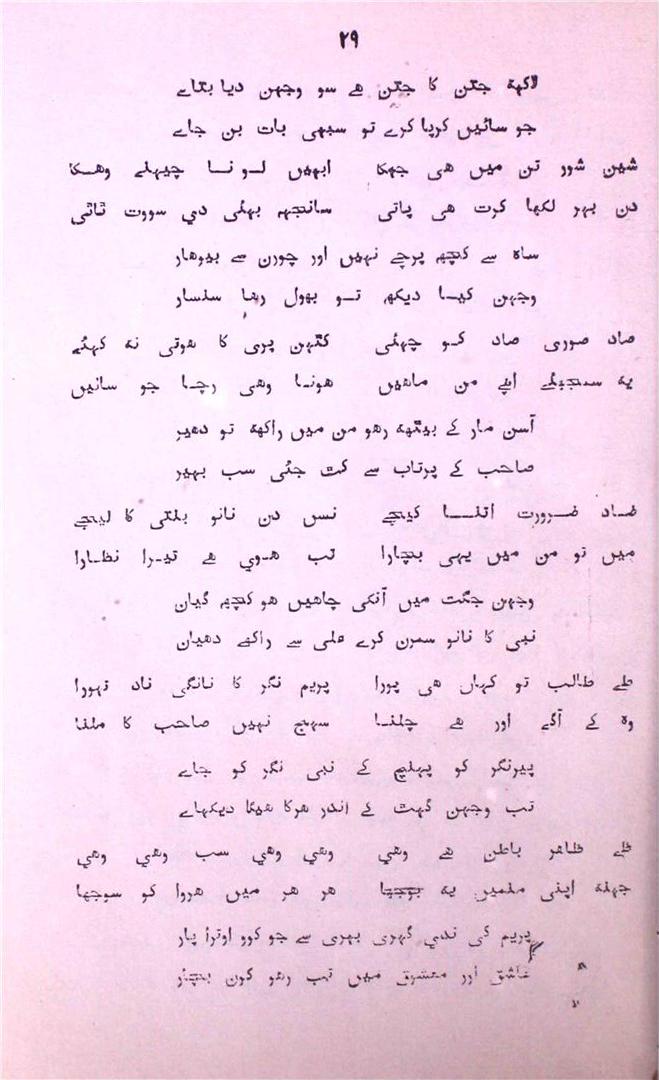 ۲۹
لاکھہ جتن کا جتن ھے سو وجهن دیا بتاے
جو سائیں کرپا کرے تو سبھی بات بن جاے
شین شور تن میں ھی جهکا ابهیں لونا چیهلے وهکا
دن بهر لکها کرت ھی پاتی سانجهہ بهلی دي سووت ثاتی
ساہ سے کچهہ پرچے نہیں اور چورن سے بیوهار
وجهن کیسا دیکھہ تو بهول رها سنسار
صاد صوری صاد کو چهئی کتهن پری کا هوتی نہ کهئے
یہ سنجیلے اپے من ماهیں هونا وهی رچا جو سائیں
آسن مار کے بیتهہ رهو من میں راکهہ تو دهیر
صاحب کے پرتاب سے کت جئی سب بهیر
ضاد ضرورت اتنا کیجے نسں دن نانو بلتی کا لیجے
میں تو من میں یہی بچارا تب هوي ھے تیرا نظارا
وجهن جگت میں آنکی چاهیں هو کچهہ گیان
نبی کا نانو سمرن کرے علی سے راکهے دهیان
طے طالب تو کہاں هی پورا پریم نگر کا نانگی ناد نہورا
وہ کے آگے اور ھے چلنا سہج نہیں صاحب کا ملنا
پیرنگر کو پہنچ کے نبی نگر کو جاے
تب وجهن گهت کے اندر هرکا هیکا دیکهاے
ظے ظاهر باطن ھے وهی وهی وهی سب وهی وهی
جهلہ اپنی ملمیں یہ بوجها هر هر میں هروا کو سوجها
پریم کی ندي گہری بهری سے جو کورو اوترا پار
عاشق اور معشوق میں تب رهو کون بچار